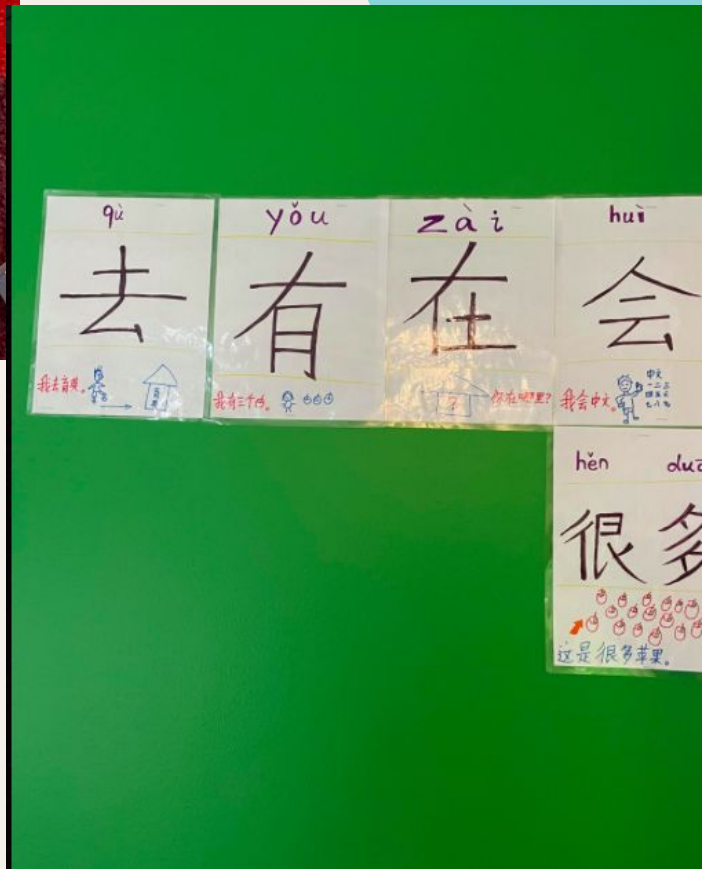 qù
去
我去育英。
育英
yǒu
有
我有三个
zài
在
?
你在哪里?
huì
会
我会中文。
中文
一二三
四五六
七八九
hěn
很多
这是很多苹果。